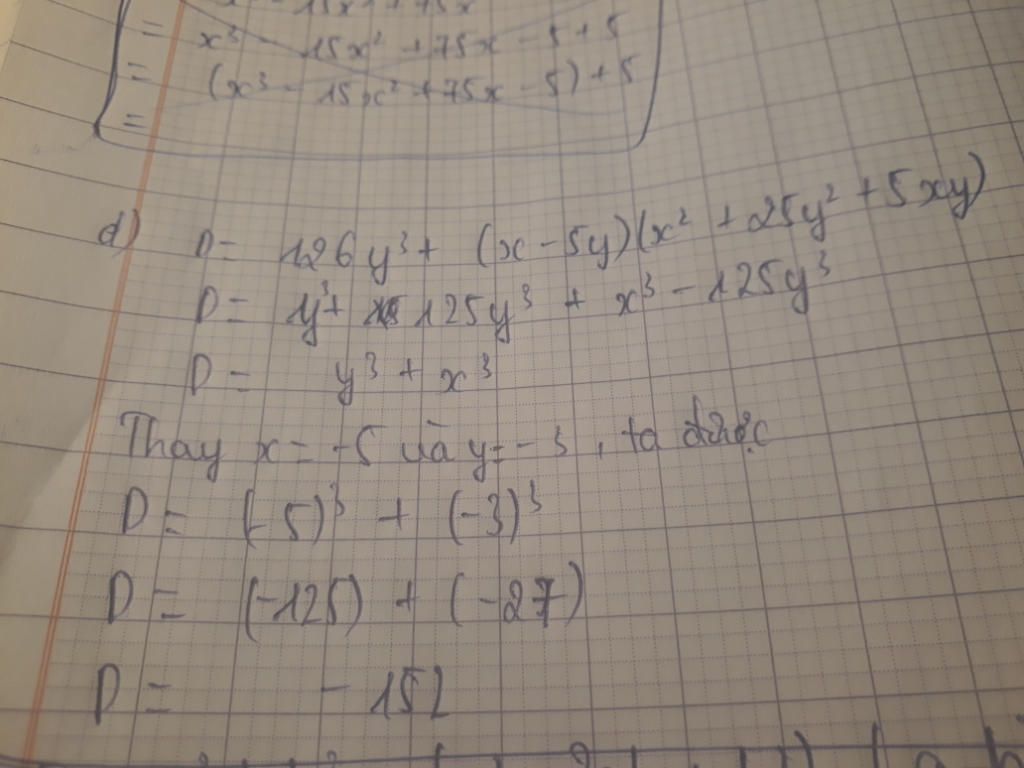 = x³ - 15x² + 75x - 5 + 5
= (x³ - 15x² + 75x - 5) + 5
=
d) D = 126y³ + (x - 5y)(x² + 25y² + 5xy)
D = 1y³ + 125y³ + x³ - 125y³
D = y³ + x³
Thay x = -5 và y = -3, ta được
D = (-5)³ + (-3)³
D = (-125) + (-27)
D = - 152